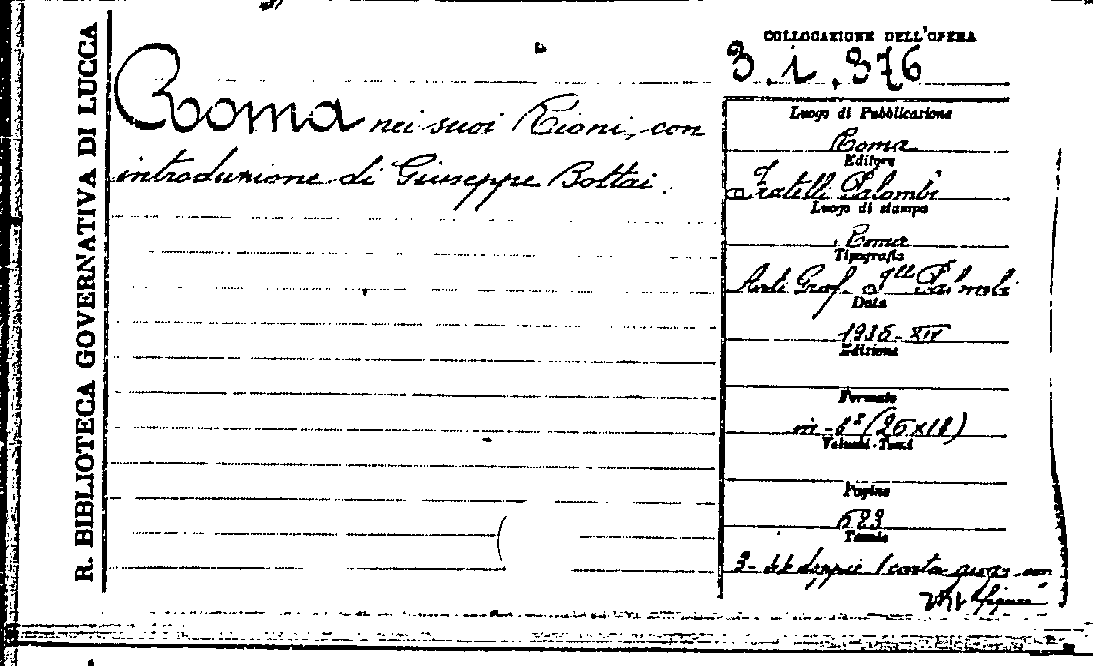 R. BIBLIOTECA GOVERNATIVA DI LUCCA
Roma nei suoi Rioni, con
introduzione di Giuseppe Bottai.
COLLOCAZIONE DELL'OPERA
3.i.376
Luogo di Pubblicazione
Roma
Editore
Fratelli Palombi
Luogo di stampa
Roma
Tipografia
Arti Graf. F.lli Palombi
Data
1936-XIV
Edizione
Formato
in-8° (25x18)
Volumi-Tomi
Pagine
Tavole
doppie 1 carta geogr. con
figure